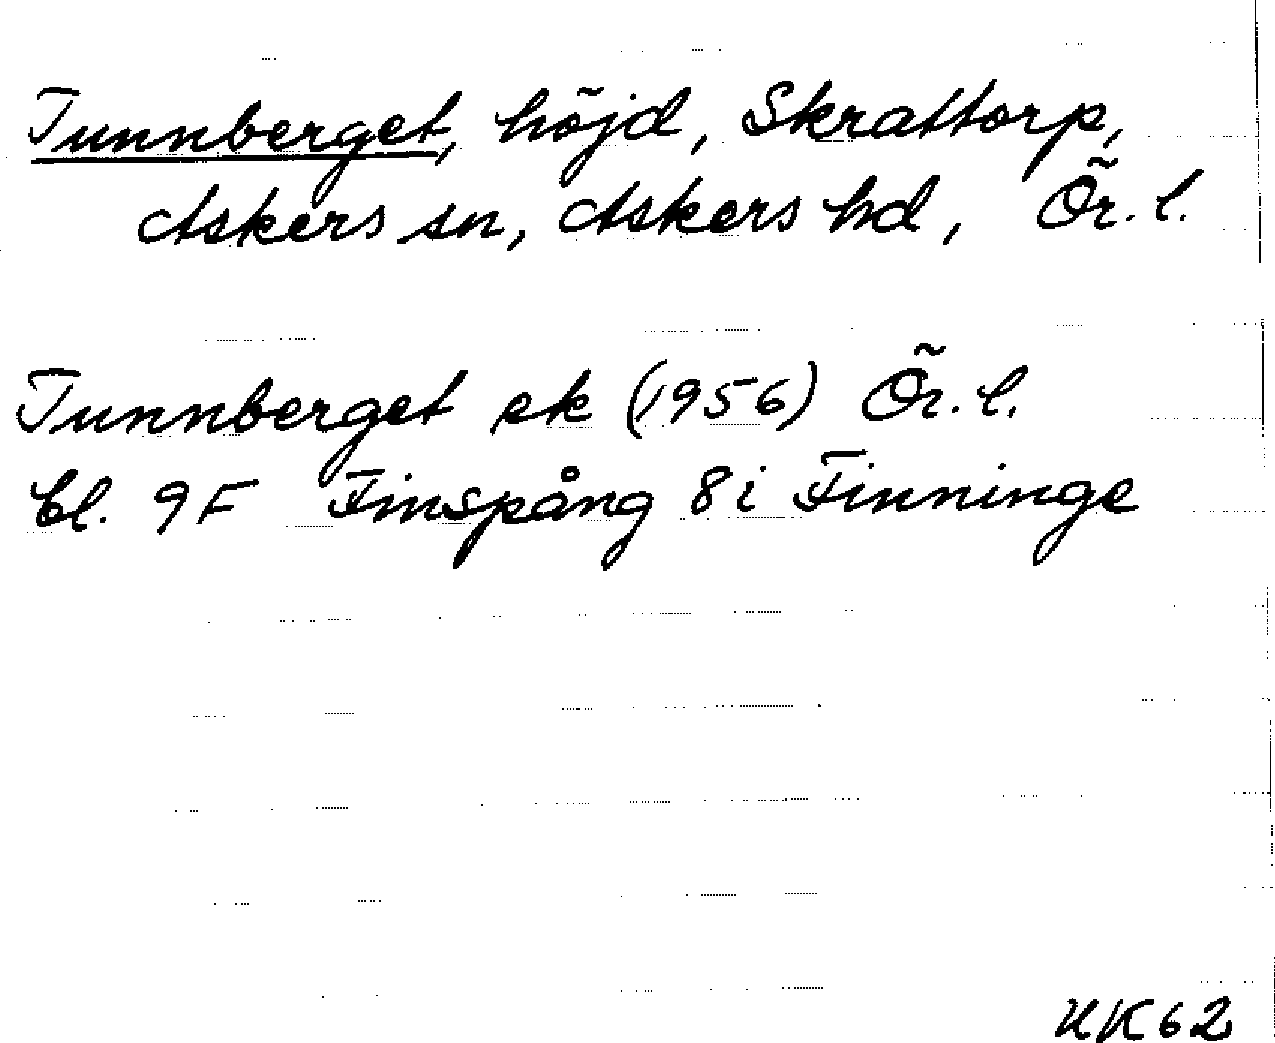 Tunnberget, höjd, Skrattorp,
Askers sn, Askers hd, Ör. l.
Tunnberget ek (1956) Ör. l.
bl. 9F Finspång 8i Finninge
KK62